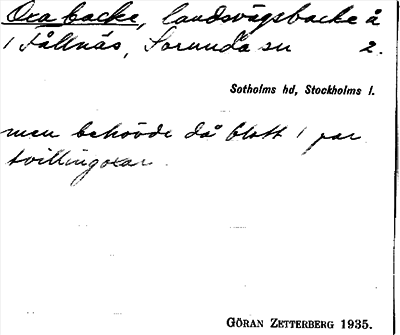 Oxabacke, landsvägsbacke å
1 Fållnäs, Sorunda sn 2.
Sotholms hd, Stockholms l.
men behövde då blott 1 par
tvillingoxar.
GÖRAN ZETTERBERG 1935.